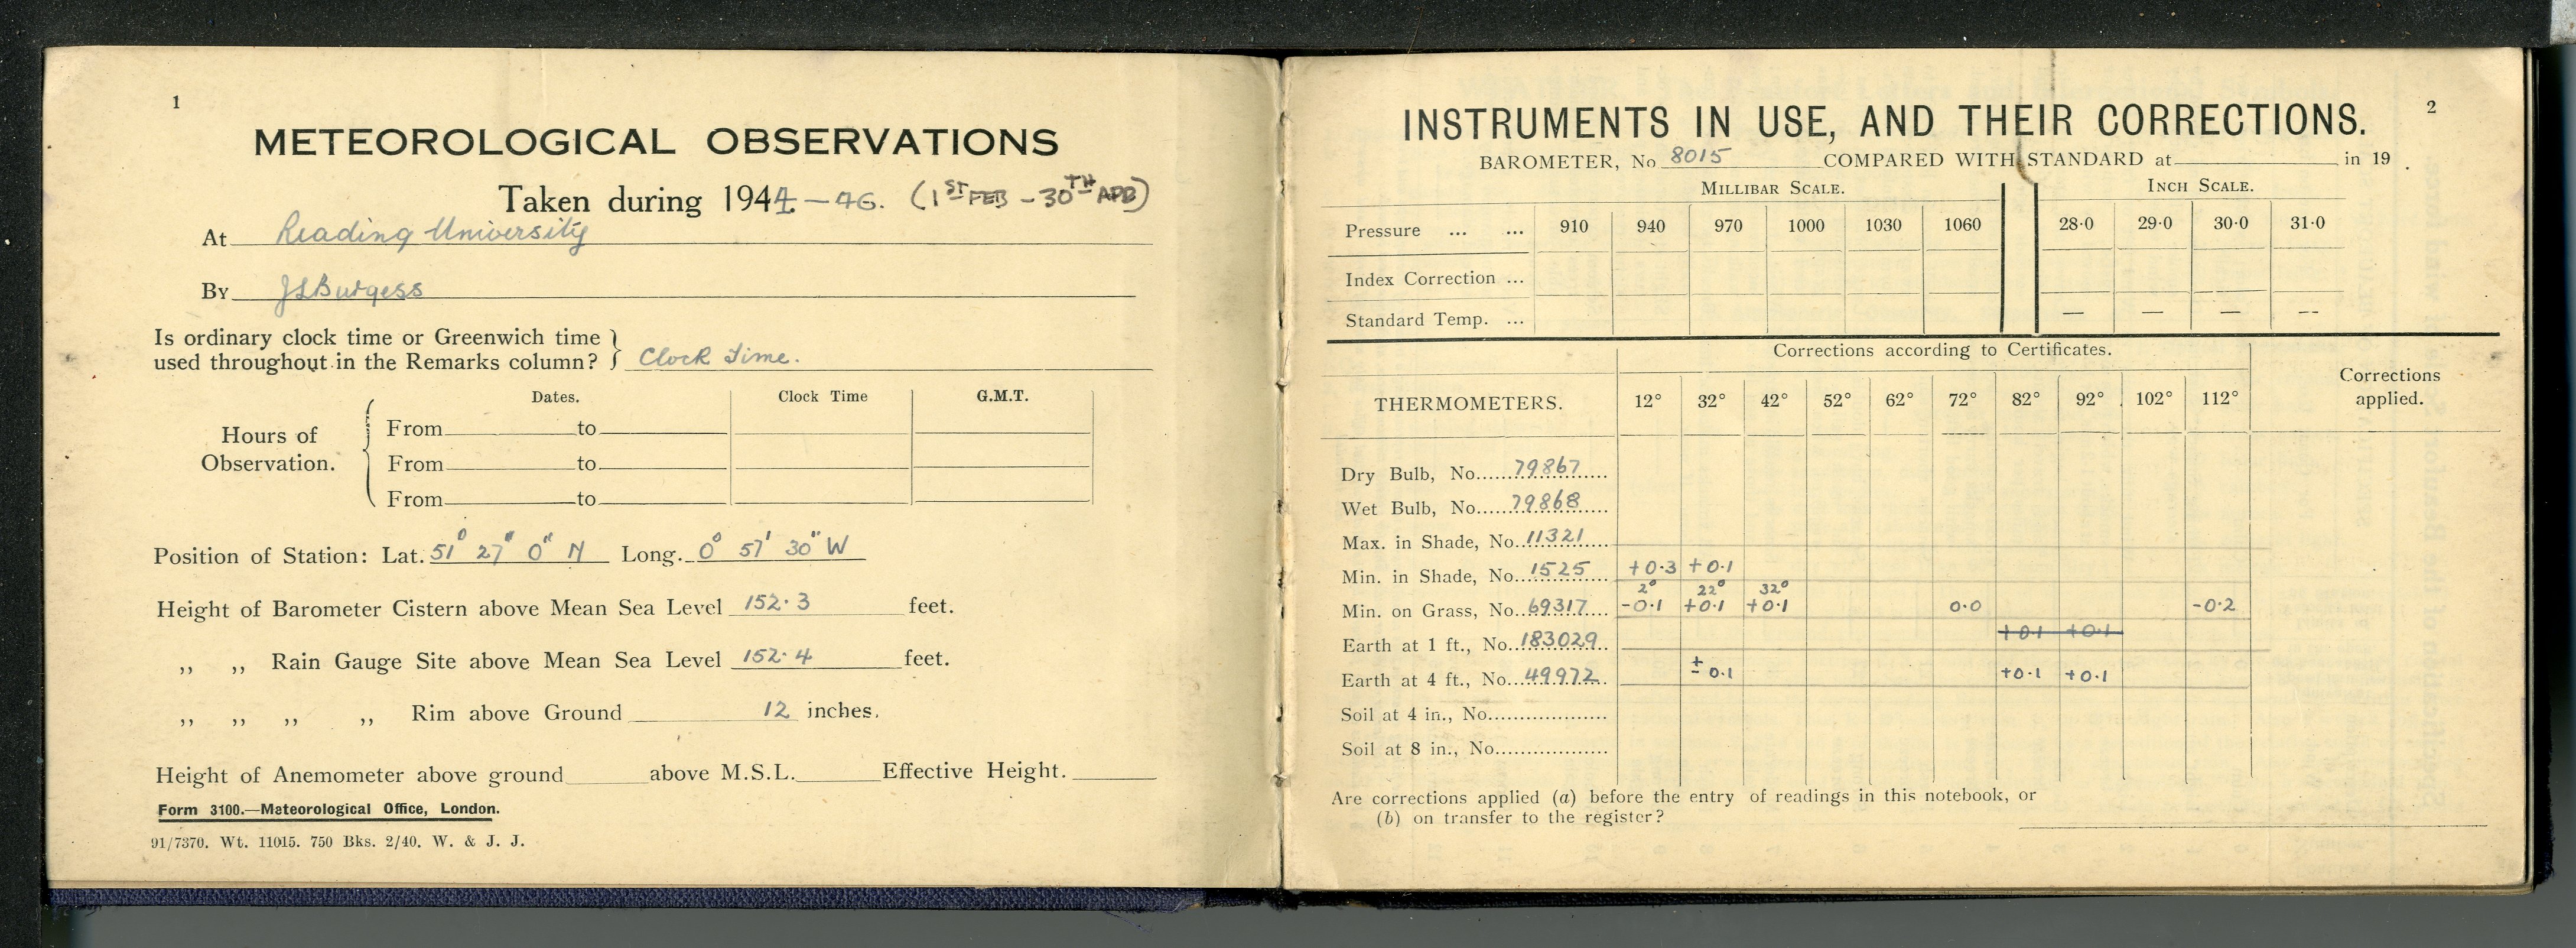 1
METEOROLOGICAL OBSERVATIONS
Taken during 1944-46. (1ST FEB - 30TH APR)
At Reading University
By JLBurgess
Is ordinary clock time or Greenwich time
used throughout in the Remarks column? } Clock Time.
Dates. Clock Time G.M.T.
Hours of Observation.
From to
From to
From to
Position of Station: Lat. 51° 27" 0" N Long. 0° 57' 30" W
Height of Barometer Cistern above Mean Sea Level 152·3 feet.
,, ,, Rain Gauge Site above Mean Sea Level 152·4 feet.
,, ,, ,, ,, Rim above Ground 12 inches.
Height of Anemometer above ground above M.S.L. Effective Height.
Form 3100.—Meteorological Office, London.
91/7370. Wt. 11015. 750 Bks. 2/40. W. & J. J.
2
INSTRUMENTS IN USE, AND THEIR CORRECTIONS.
BAROMETER, No 8015 COMPARED WITH STANDARD at in 19 .
MILLIBAR SCALE. INCH SCALE.
Pressure ... ... 910 940 970 1000 1030 1060 28·0 29·0 30·0 31·0
Index Correction ...
Standard Temp. ... — — — --
Corrections according to Certificates.
Corrections applied.
THERMOMETERS. 12° 32° 42° 52° 62° 72° 82° 92° 102° 112°
Dry Bulb, No. 79867
Wet Bulb, No. 79868
Max. in Shade, No. 11321
Min. in Shade, No. 1525 +0·3 +0·1
2° 22° 32°
Min. on Grass, No. 69317 -0·1 +0·1 +0·1 0·0 -0·2
Earth at 1 ft., No. 183029 +0·1 +0·1
Earth at 4 ft., No. 49972 ± 0·1 +0·1 +0·1
Soil at 4 in., No.
Soil at 8 in., No.
Are corrections applied (a) before the entry of readings in this notebook, or
(b) on transfer to the register?